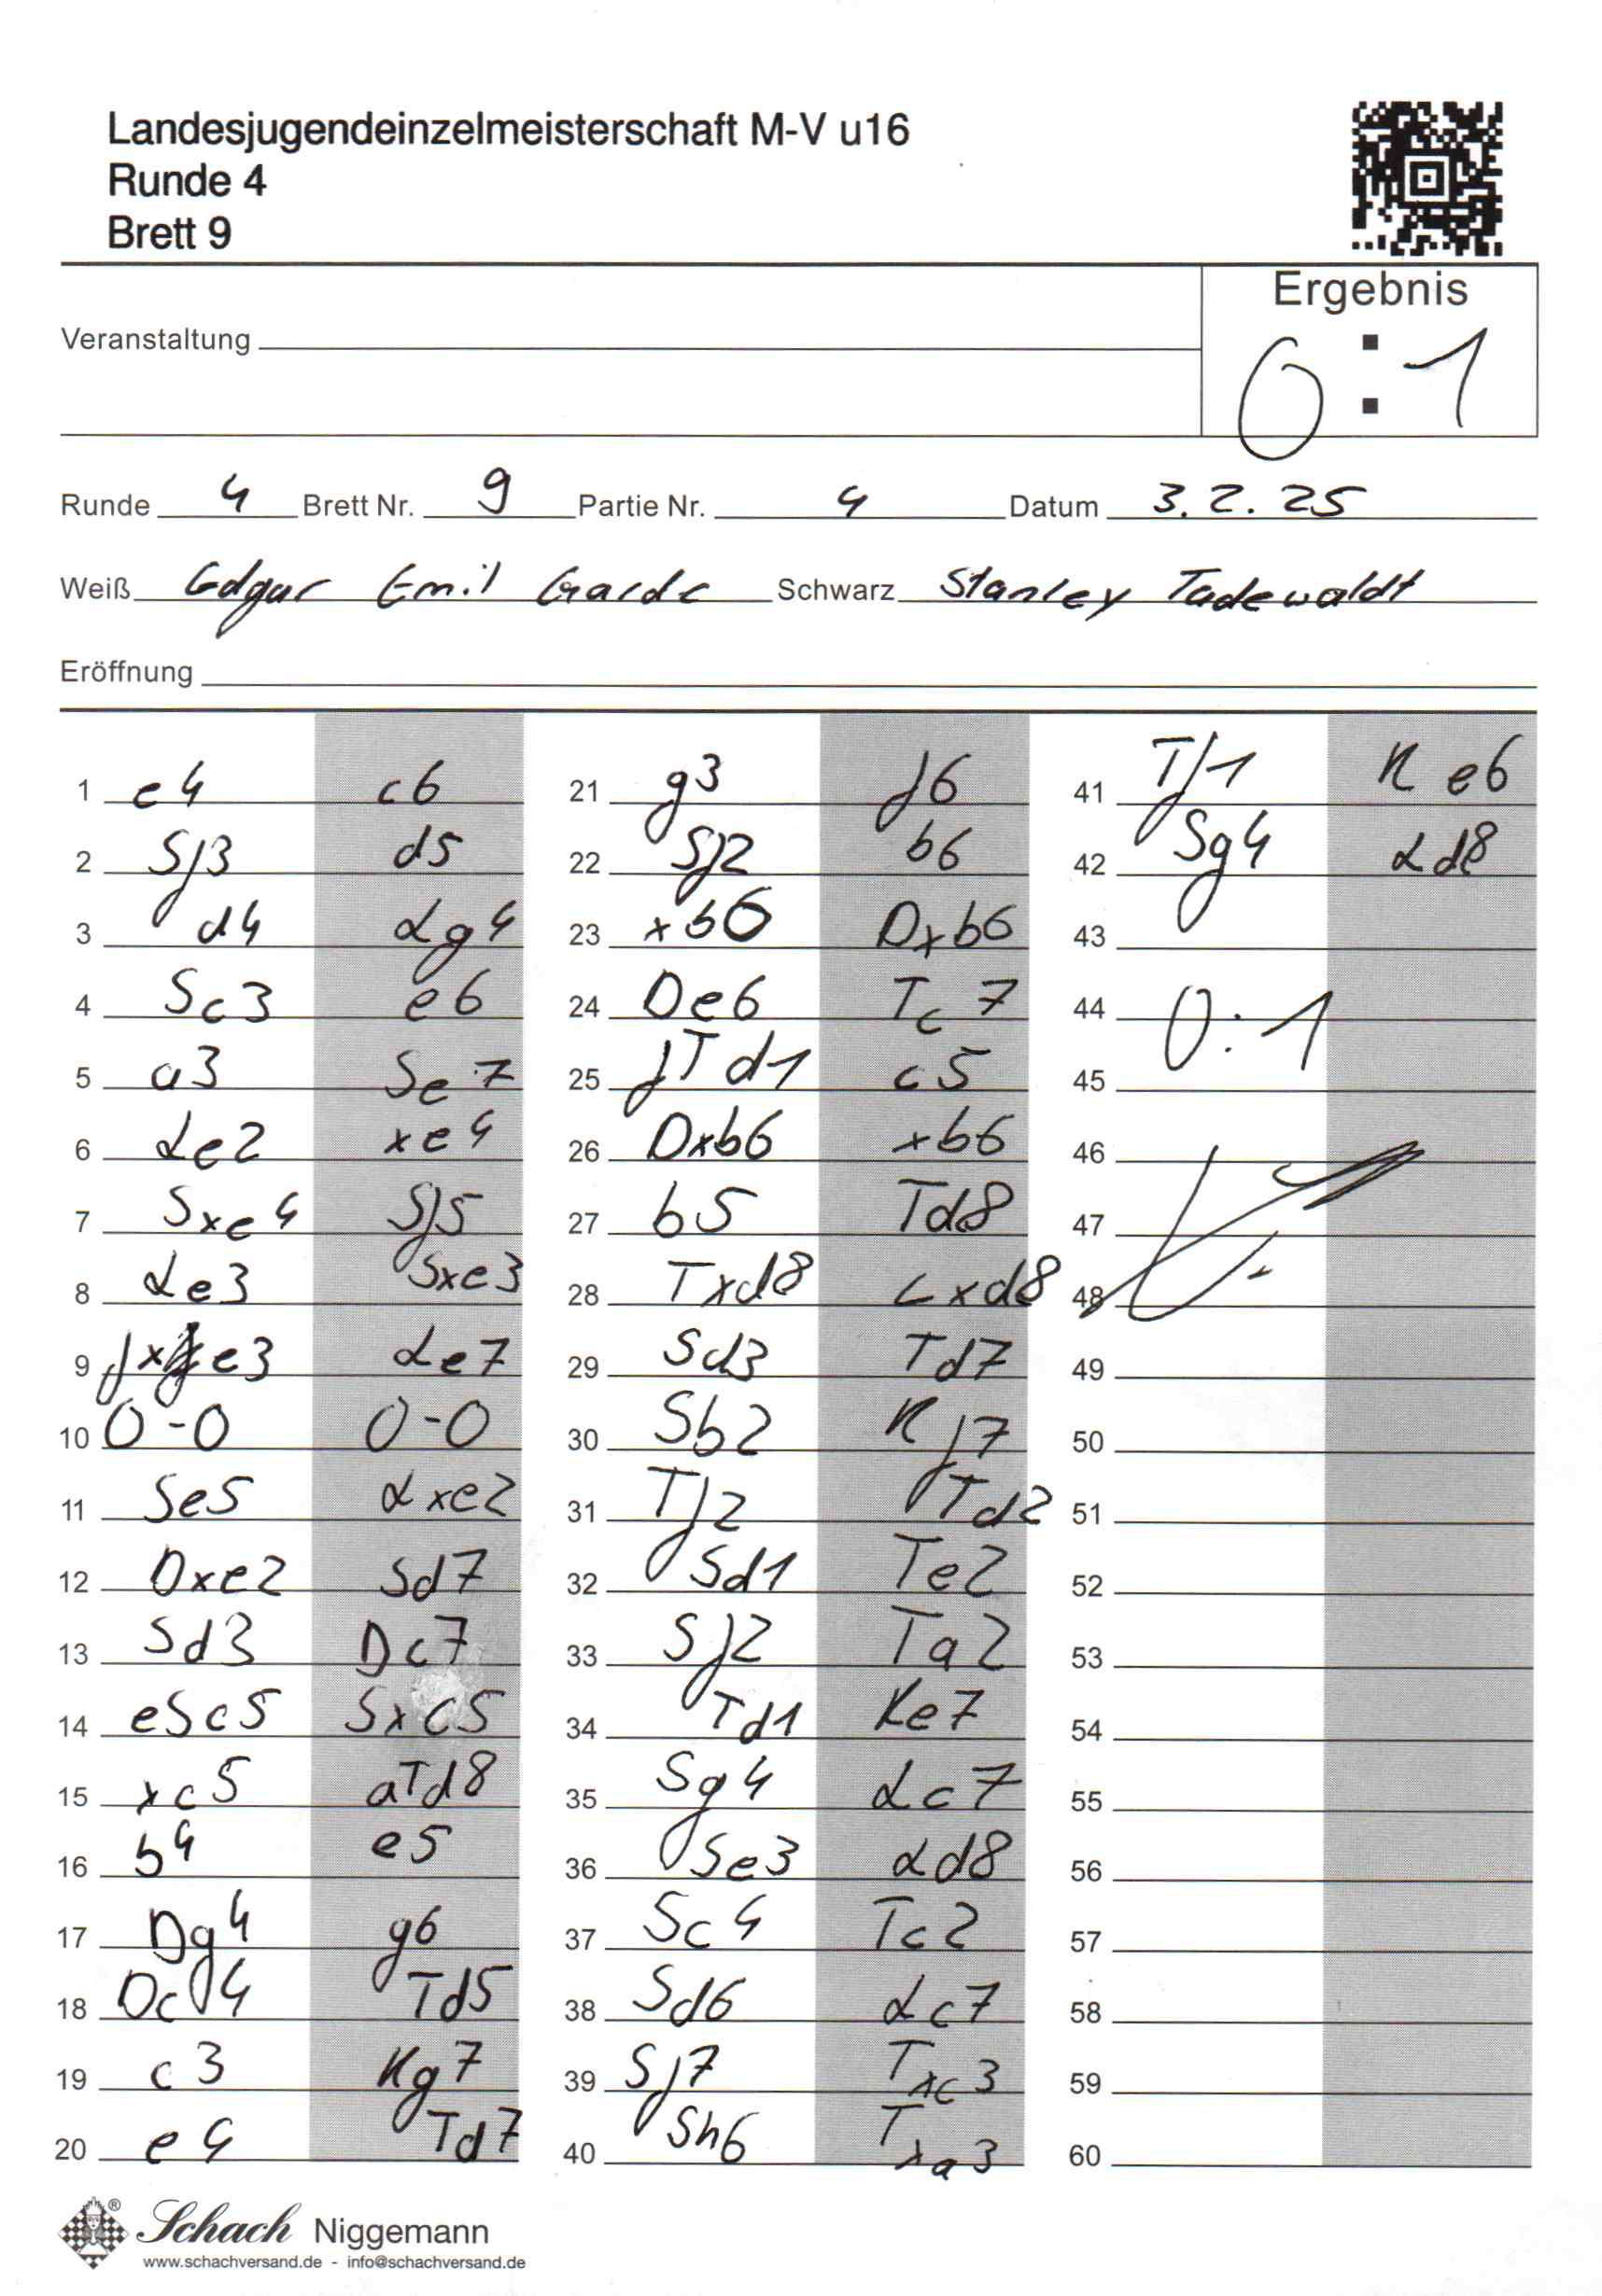 Landesjugendeinzelmeisterschaft M-V u16
Runde 4
Brett 9
Ergebnis
Veranstaltung
0:1
Runde 4 Brett Nr. 9 Partie Nr. 4 Datum 3.2.25
Weiß Edgar Emil Garde Schwarz Stanley Tadewaldt
Eröffnung
1 e4 c6
2 Sf3 d5
3 d4 Lg4
4 Sc3 e6
5 a3 Se7
6 Le2 xe4
7 Sxe4 Sf5
8 Le3 Sxe3
9 fxe3 Le7
10 0-0 0-0
11 Se5 Lxe2
12 Dxe2 Sd7
13 Sd3 Dc7
14 eSc5 Sxc5
15 xc5 aTd8
16 b4 e5
17 Dg4 g6
18 Dc4 Td5
19 c3 Kg7
20 e4 Td7
21 g3 f6
22 Sf2 b6
23 xb6 Dxb6
24 De6 Tc7
25 fTd1 c5
26 Dxb6 xb6
27 b5 Td8
28 Txd8 Lxd8
29 Sd3 Td7
30 Sb2 Kf7
31 Tf2 Td2
32 Sd1 Te2
33 Sf2 Ta2
34 Td1 Ke7
35 Sg4 Lc7
36 Se3 Ld8
37 Sc4 Tc2
38 Sd6 Lc7
39 Sf7 Txc3
40 Sh6 Txa3
41 Tf1 Ke6
42 Sg4 Ld8
43
44 0:1
45
46
47
48
49
50
51
52
53
54
55
56
57
58
59
60
® Schach Niggemann
www.schachversand.de - info@schachversand.de